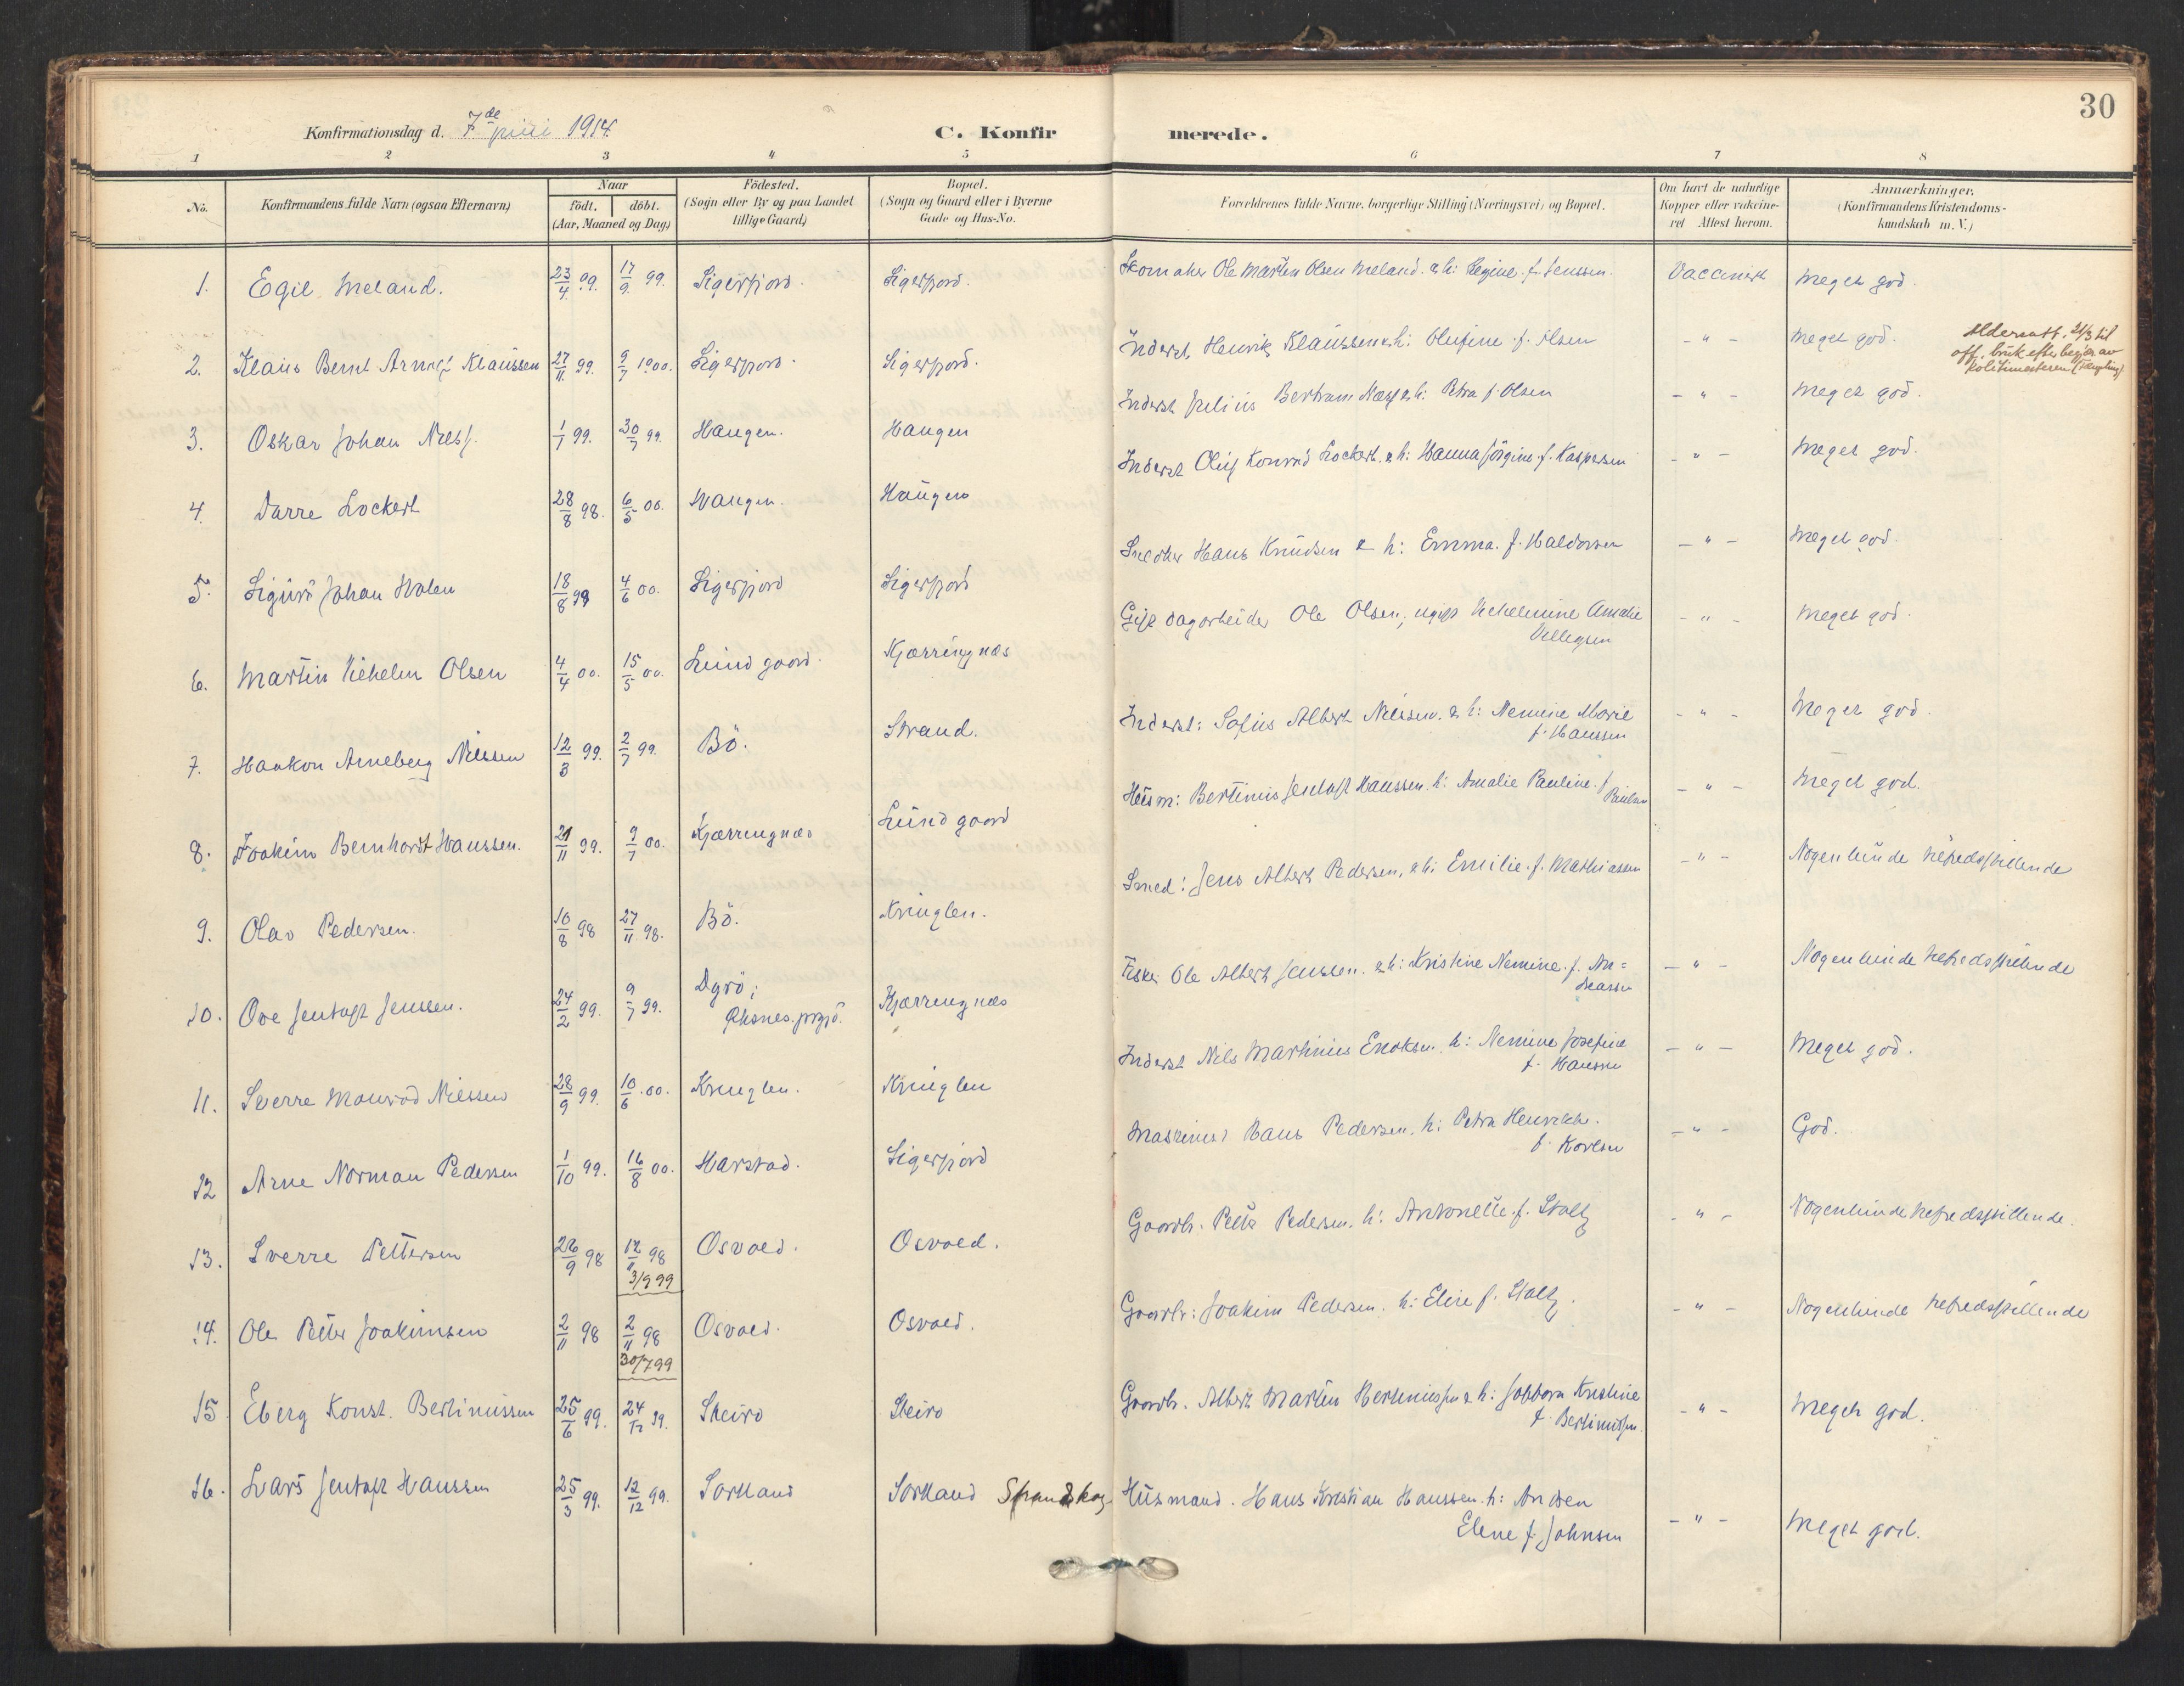 30
Konfirmationsdag d. 7de juni 1914.
C. Konfirmerede.
1 2 3 4 5 6 7 8
No.
Konfirmandens fulde Navn (ogsaa Efternavn)
Naar
født. døbt.
(Aar, Maaned og Dag)
Födested.
(Sogn eller By og paa Landet
tillige Gaard)
Bopæl.
(Sogn og Gaard eller i Byerne
Gade og Hus-No.
Forældrenes fulde Navne, borgerlige Stilling (Næringsvei) og Bopæl.
Om havt de naturlige
Kopper eller vakcine-
ret Attest herom.
Anmærkninger.
(Konfirmandens Kristendoms-
kundskab m. V.)
1. Egil Meland. 23/4 99. 17/9 99. Sigerfjord. Sigerfjord. Skomaker Ole Martin Olsen Meland. & h: Regine f. Jenssen. Vaccinert Meget god.
2. Klaus Bernt Arnolf Klaussen 27/11 99. 9/7 1900. Sigerfjord. Sigerfjord. Inderst Henrik Klaussen & h: Olufine f. Olsen - " - Meget god.
Aldersatt. 21/3 til
off. bruk efter begjær. av
politimesteren
3. Oskar Johan Næss. 1/1 99. 30/7 99. Haugen. Haugen Inderst Julius Bertram Næss & h: Petra f. Olsen - " - Meget god.
4. Darre Lockert 28/8 98. 6/5 00. Haugen. Haugen Inderst Oluf Konrad Lockert. & h: Hanna Jörgine f. Kaspersen - " - Meget god.
5. Sigurd Johan Holen 18/8 99 4/6 00. Sigerfjord Sigerfjord Snedker Hans Knudsen & h: Emma. f. Haldorsen - " - Meget god.
6. Martin Vilhelm Olsen 4/4 00. 15/5 00. Lund gaard. Kjærringnæs Gift dagarbeider Ole Olsen, ugift Vilhelmine Amalie
Dellegsen - " - Meget god.
7. Haakon Arneberg Nilssen 12/3 99. 2/7 99. Bö. Strand. Inderst: Sofus Albert Nilssen. & h: Nemine Marie
f. Hanssen - " - Meget god.
8. Joakim Bernhardt Hanssen. 21/11 99. 9/7 00. Kjærringnæs Lund gaard Husm: Bertinus Jentoft Hanssen. h: Amalie Pauline f.
Paulsen - " - Meget god.
9. Olav Pedersen. 10/8 98 27/11 98. Bö. Kringlen. Smed: Jens Albert Pedersen, & h: Emilie. f. Mathiassen - " - Nogenlunde tilfredsstillende
10. Ove Jentoft Jenssen. 24/2 99. 9/7 99. Dyrö,
Øksnes. prgjd. Kjærringnæs Fisker Ole Albert Jenssen. & h: Kristine Nemine. f. An=
dreassen - " - Nogenlunde tilfredsstillende
11. Sverre Monrad Nilssen 28/9 99. 10/6 00. Kringlen. Kringlen Inderst Nils Martinus Enoksen. h: Nemine Josefine
f. Hanssen - " - Meget god.
12 Arne Norman Pedersen 1/10 99. 16/8 00. Harstad. Sigerfjord Maskinist Hans Pedersen. h: Petra Henrikke.
f. Karlsen - " - God.
13. Sverre Pettersen 26/9 98 12/11 98
3/9 99 Osvold. Osvold. Gaardb. Petter Pedersen. h: Antonette. f. Stoltz - " - Nogenlunde tilfredsstillende.
14. Ole Petter Joakimsen 2/11 98 2/11 98
30/7 99 Osvold. Osvold. Gaardb: Joakim Pedersen. h: Eline f. Stoltz. - " - Nogenlunde tilfredsstillende
15. Eberg Konst. Bertinussen 25/6 99. 24/12 99. Steiro Steiro Gaardb. Albert Martin Bertinussen & h: Jobborn Kristine
f. Bertinussen. - " - Meget god.
16. Lars Jentoft Hanssen 25/3 99. 12/12 99. Sortland Sortland Strandskog. Husmand. Hans Kristian Hanssen. h: Andrea
Elene f. Johnsen - " - Meget god.